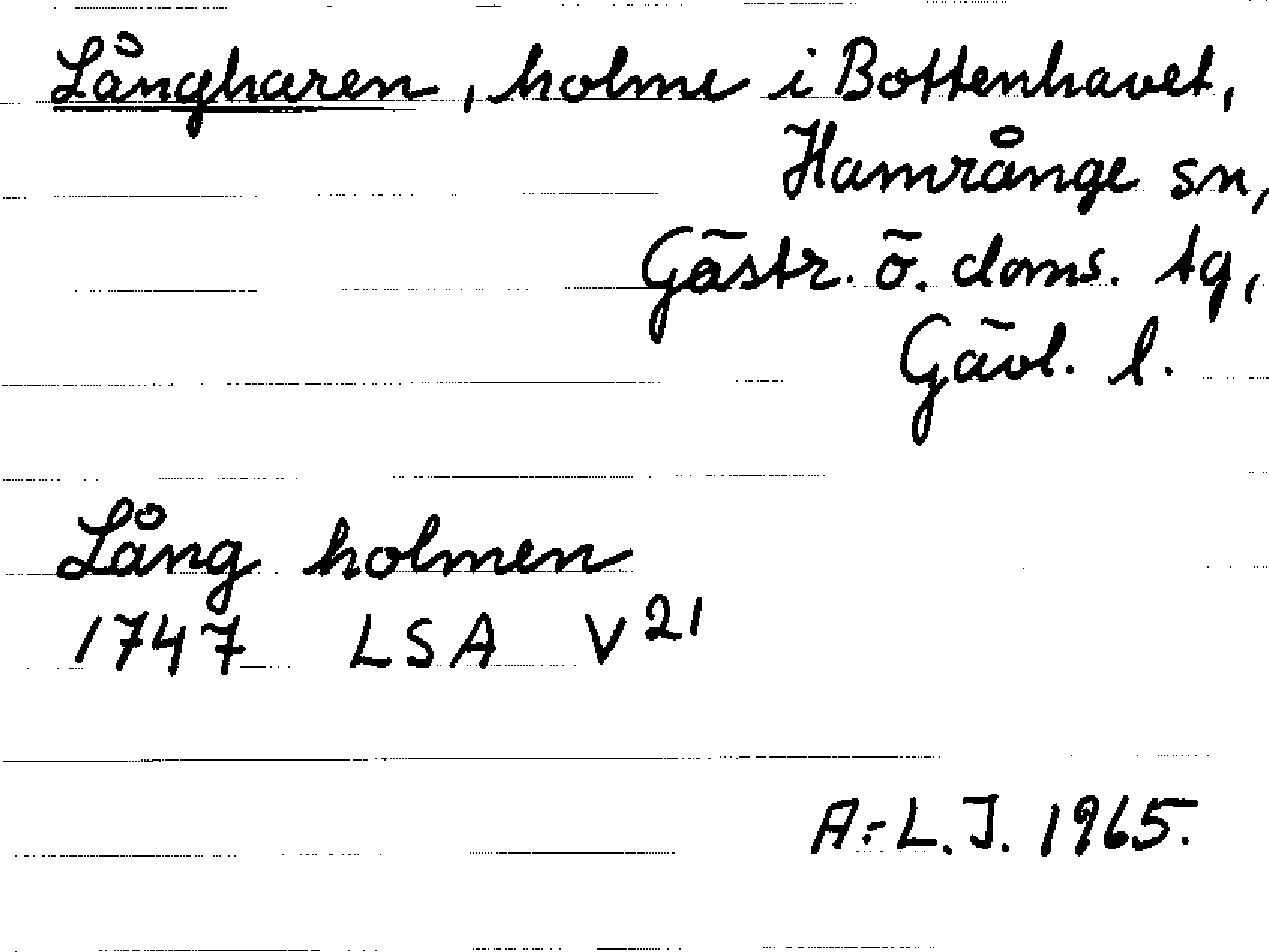 Långharen, holme i Bottenhavet,
Hamrånge sn,
Gästr. ö. doms. tg,
Gävl. l.
Lång holmen
1747 LSA V²¹
A.-L. J. 1965.